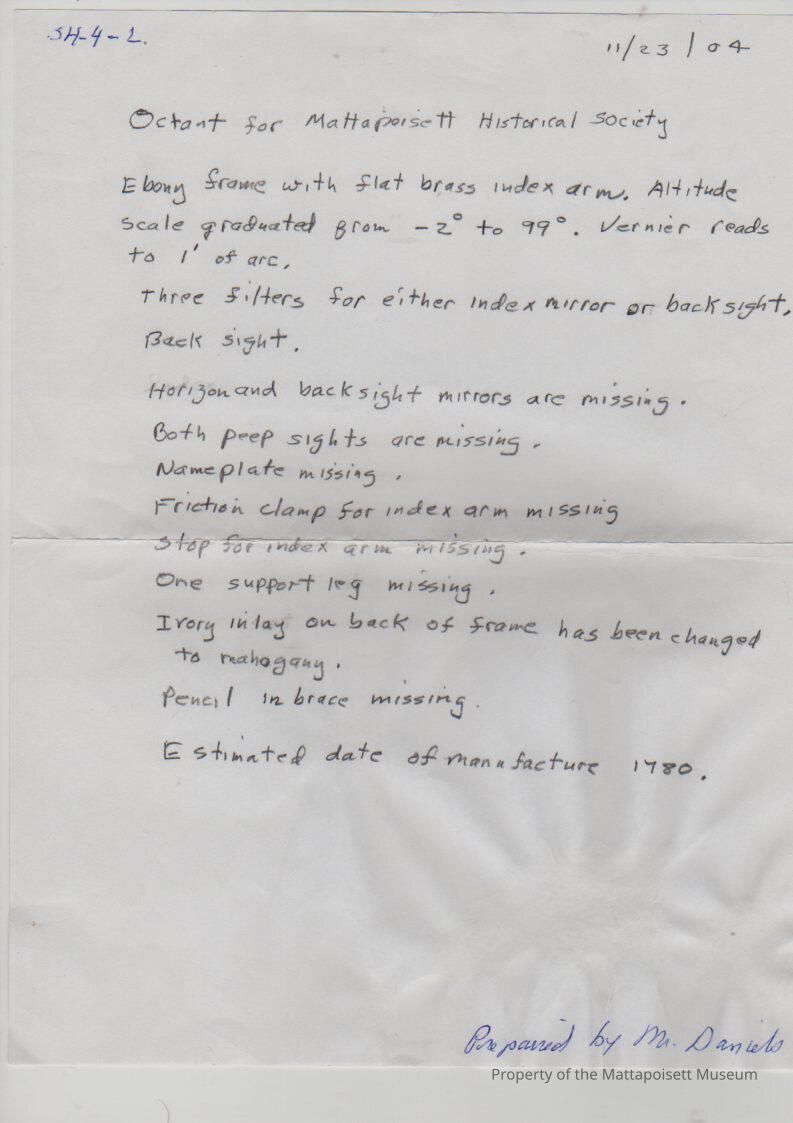 SH-4-2.
11/23/04
Octant for Mattapoisett Historical Society
Ebony frame with flat brass index arm. Altitude
scale graduated from -2° to 99°. Vernier reads
to 1' of arc.
Three filters for either index mirror or back sight.
Back sight.
Horizon and back sight mirrors are missing.
Both peep sights are missing.
Nameplate missing.
Friction clamp for index arm missing
Stop for index arm missing.
One support leg missing.
Ivory inlay on back of frame has been changed
to mahogany.
Pencil in brace missing.
Estimated date of manufacture 1780.
Prepared by Mr. Daniels
Property of the Mattapoisett Museum